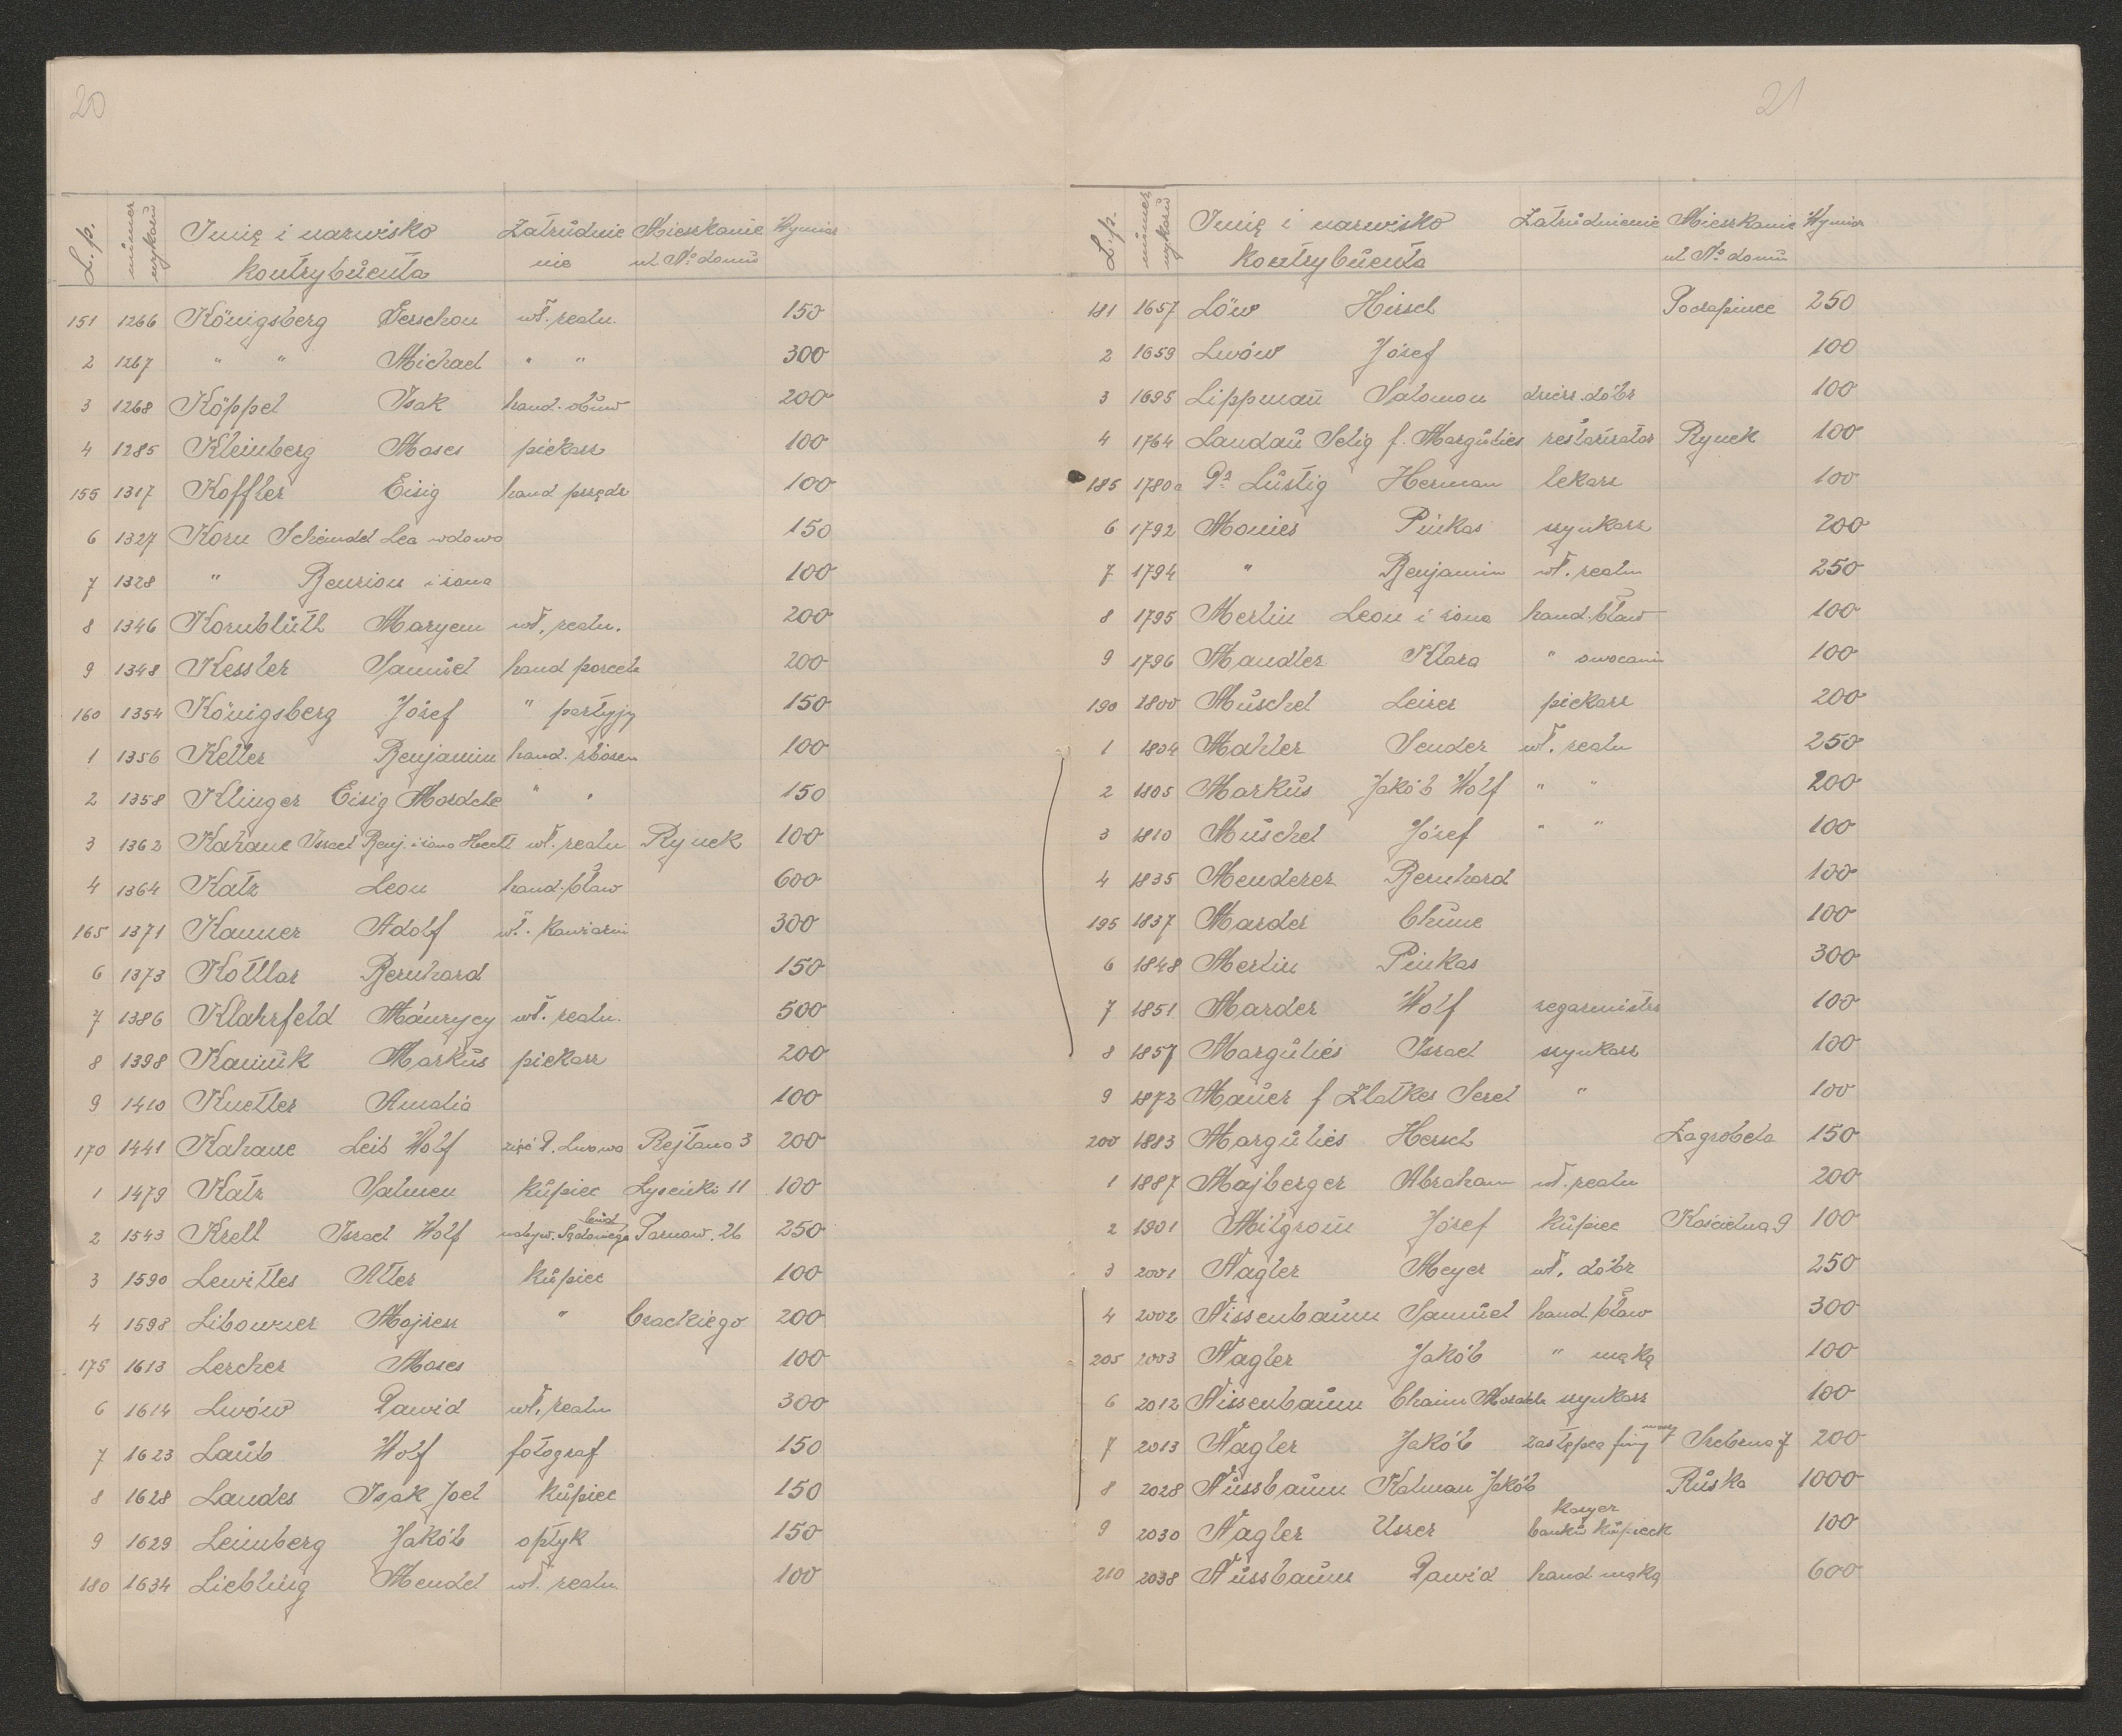 20
L.p. numer wykazu Imię i nazwisko kontrybuenta Zatrudnienie Mieszkanie ul. No domu Wymiar
151 1266 Königsberg Gerschon wł. realn. 150
2 1267 " " Michael " " 300
3 1268 Köppel Isak hand. obuw 200
4 1285 Kleinberg Moses piekarz 100
155 1317 Koffler Eisig hand przędz 100
6 1327 Korn Scheindel Lea wdowa 150
7 1328 " Benzion i żona 100
8 1346 Kornblüth Maryem wł. realn. 200
9 1348 Kessler Samuel hand porcela 200
160 1354 Königsberg Józef " partyjy 150
1 1356 Keller Benjamin hand. zbożem 100
2 1358 Klinger Eisig Mordche " " 150
3 1362 Kahane Israel Benj. i żona Hecht wł. realn Rynek 100
4 1364 Katz Leon hand. bław 600
165 1371 Kanner Adolf wł. kawiarni 300
6 1373 Kottlar Bernhard 150
7 1386 Klahrfeld Maurycy wł. realn. 500
8 1398 Kaminik Markus piekarz 200
9 1410 Knetler Amalia 100
170 1441 Kahane Leib Wolf zięć D. Lwowa Rejtana 3 200
1 1479 Katz Salmen kupiec Lyseńki 11 100
2 1543 Krell Israel Wolf nabyw. Sądowego Tarnow. 26 250
3 1590 Lewittes Alter kupiec 100
4 1598 Libowner Mojżesz " Czackiego 200
175 1613 Lercher Moses 100
6 1614 Lwów Dawid wł. realn 300
7 1623 Laub Wolf fotograf 150
8 1628 Landes Isak Joel kupiec 150
9 1629 Leimberg Jakób optyk 150
180 1634 Liebling Mendel wł. realn. 100
21
L.p. numer wykazu Imię i nazwisko kontrybuenta Zatrudnienie Mieszkanie ul No domu Wymiar
181 1657 Löw Hirsch Podzapince 250
2 1659 Lwów Józef 100
3 1695 Lippman Salomon dzierż. dóbr 100
4 1764 Landau Selig f. Margulies restaurator Rynek 100
185 1780a Dr Lustig Herman lekarz 100
6 1792 Monies Pinkas szynkarz 200
7 1794 " Benjamin wł. realn 250
8 1795 Merlin Leon i żona hand. bław 100
9 1796 Mandler Klara " owocami 100
190 1800 Muschel Leizer piekarz 200
1 1804 Mahler Sender wł. realn 250
2 1805 Markus Jakób Wolf " " 200
3 1810 Muschel Józef " " 100
4 1835 Menderer Bernhard 100
195 1837 Marder Chune 100
6 1848 Merlin Pinkas 300
7 1851 Marder Wolf zegarmistrz 100
8 1857 Margulies Israel szynkarz 100
9 1872 Mauer f Zlatkes Serel " 100
200 1883 Margulies Hersch Zagrobela 150
1 1887 Majberger Abraham wł. realn 200
2 1901 Milgrom Józef kupiec Kościelna 9 100
3 2001 Nagler Meyer wł. dóbr 250
4 2002 Nissenbaum Samuel hand. bław 300
205 2003 Nagler Jakób " mąką 100
6 2012 Nissenbaum Chaim Mordche szynkarz 100
7 2013 Nagler Jakób zastępca firmy Srebrna 7 200
8 2028 Nussbaum Kalman Jakób Ruska 1000
9 2030 Nagler Uszer kasyer banku kupieck 100
210 2038 Nussbaum Dawid hand mąką 600